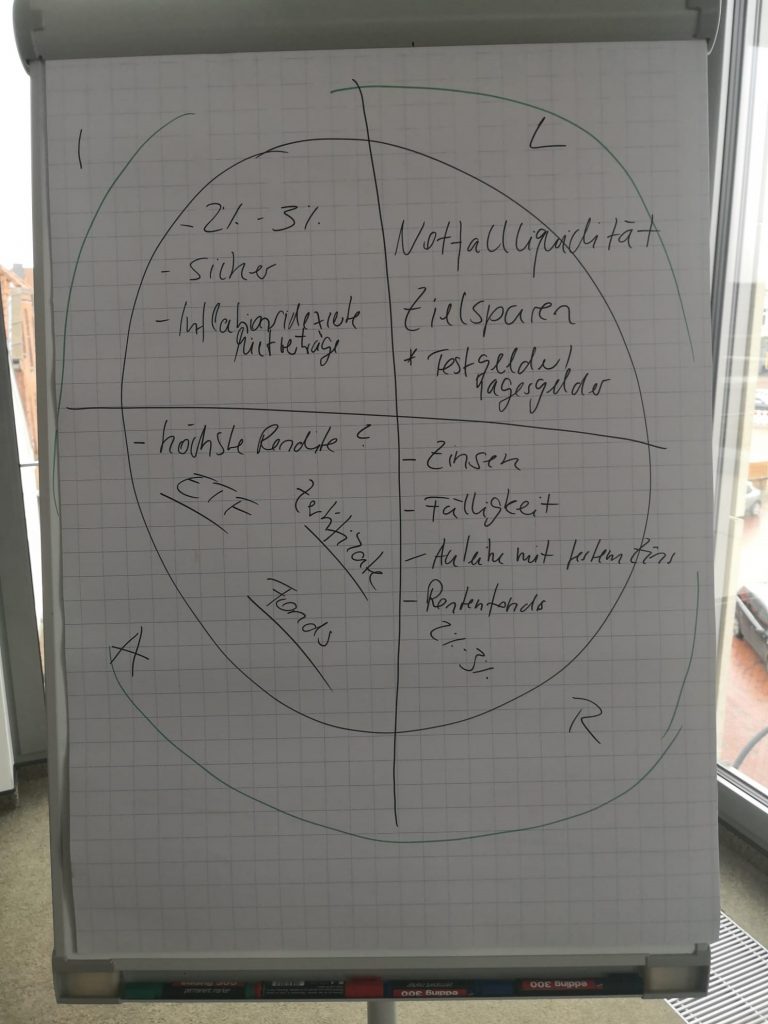 I
- 2% - 3%
- sicher
- Inflationsindexierte
Mietbeträge
L
Notfallliquidität
Zielsparen
* Festgelder/
Tagesgelder
- höchste Rendite ?
ETF
Zertifikate
Fonds
A
- Zinsen
- Fälligkeit
- Anleihe mit festem Zins
- Rentenfonds
2%-3%
R
edding 300
edding 300